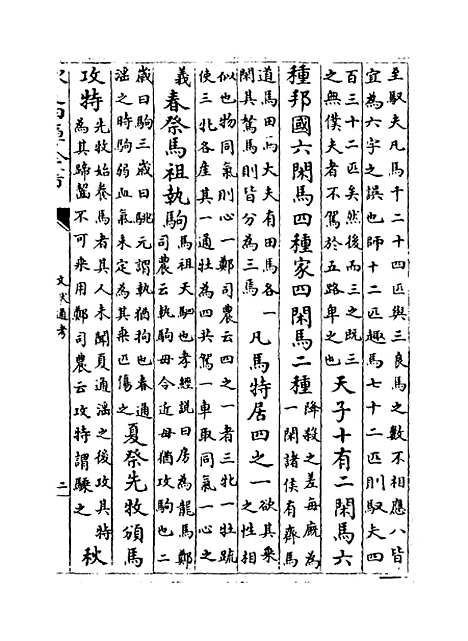 至馭夫凡馬十二十四匹與三良馬之數不相應八皆
宜為六字之誤也師十二匹趣馬七十二匹則馭夫四
百三十二匹矣然後而三之既三
之無僕夫者不駕於五路卑之也
天子十有二閑馬六
種邦國六閑馬四種家四閑馬二種
降殺之差每廐為
一閑諸侯有齊馬
道馬田馬大夫有田馬各一
閑其駑馬則皆分為三馬
凡馬特居四之一
欲其乘
之性相
似也物同氣則心一鄭司農云四之一者三牝一牡疏
使三牝各產其一通牡為四共駕一車取同氣一心之
義
春祭馬祖執駒
馬祖天駟也孝經說曰房為龍馬鄭
司農云執駒毋令近母猶攻駒也二
歲曰駒三歲曰駣元謂執猶拘也春通
滛之時駒弱血氣未定為其乘匹傷之
夏祭先牧頒馬
攻特
先牧始養馬者其人未聞夏通滛之後攻其特
為其蹄齧不可乘用鄭司農云攻特謂騬之
秋
文獻通考
二